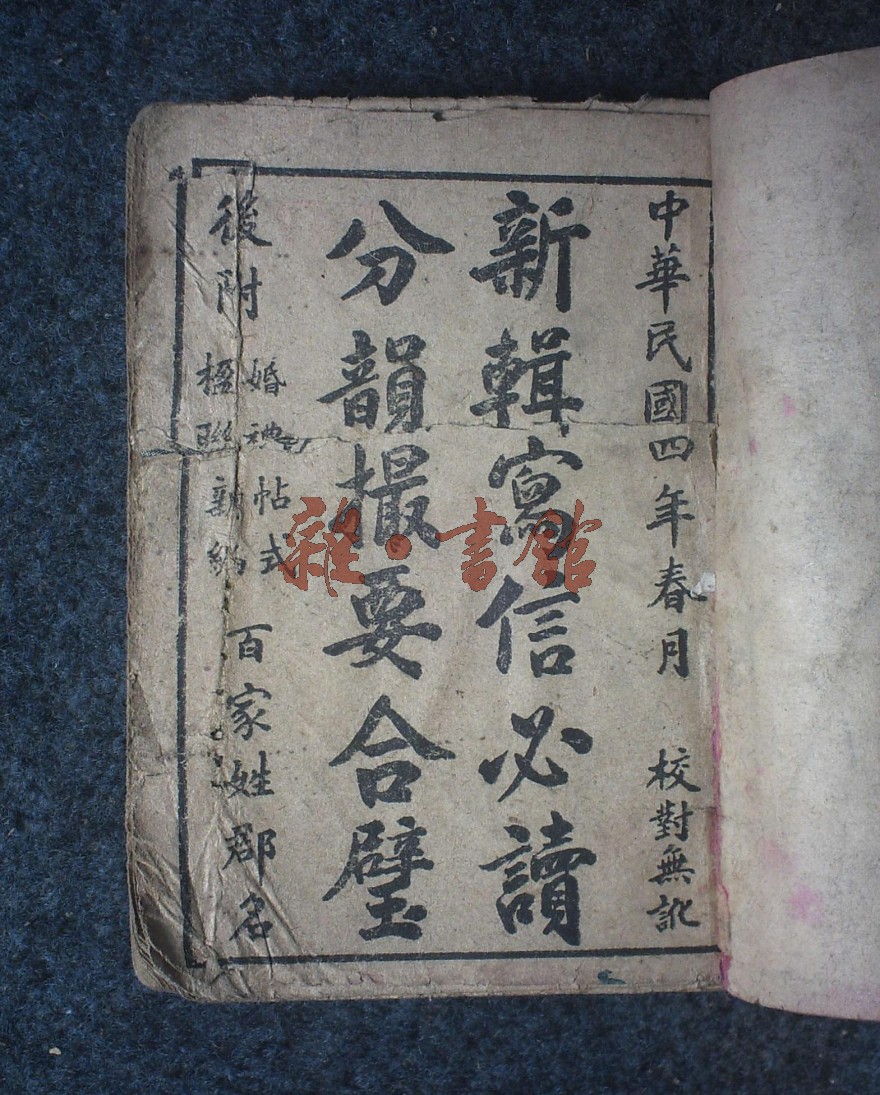 中華民國四年春月 校對無訛
新輯寫信必讀
分韻撮要合璧
後附
婚禮帖式
楹聯新
百家姓郡名
雜·書館